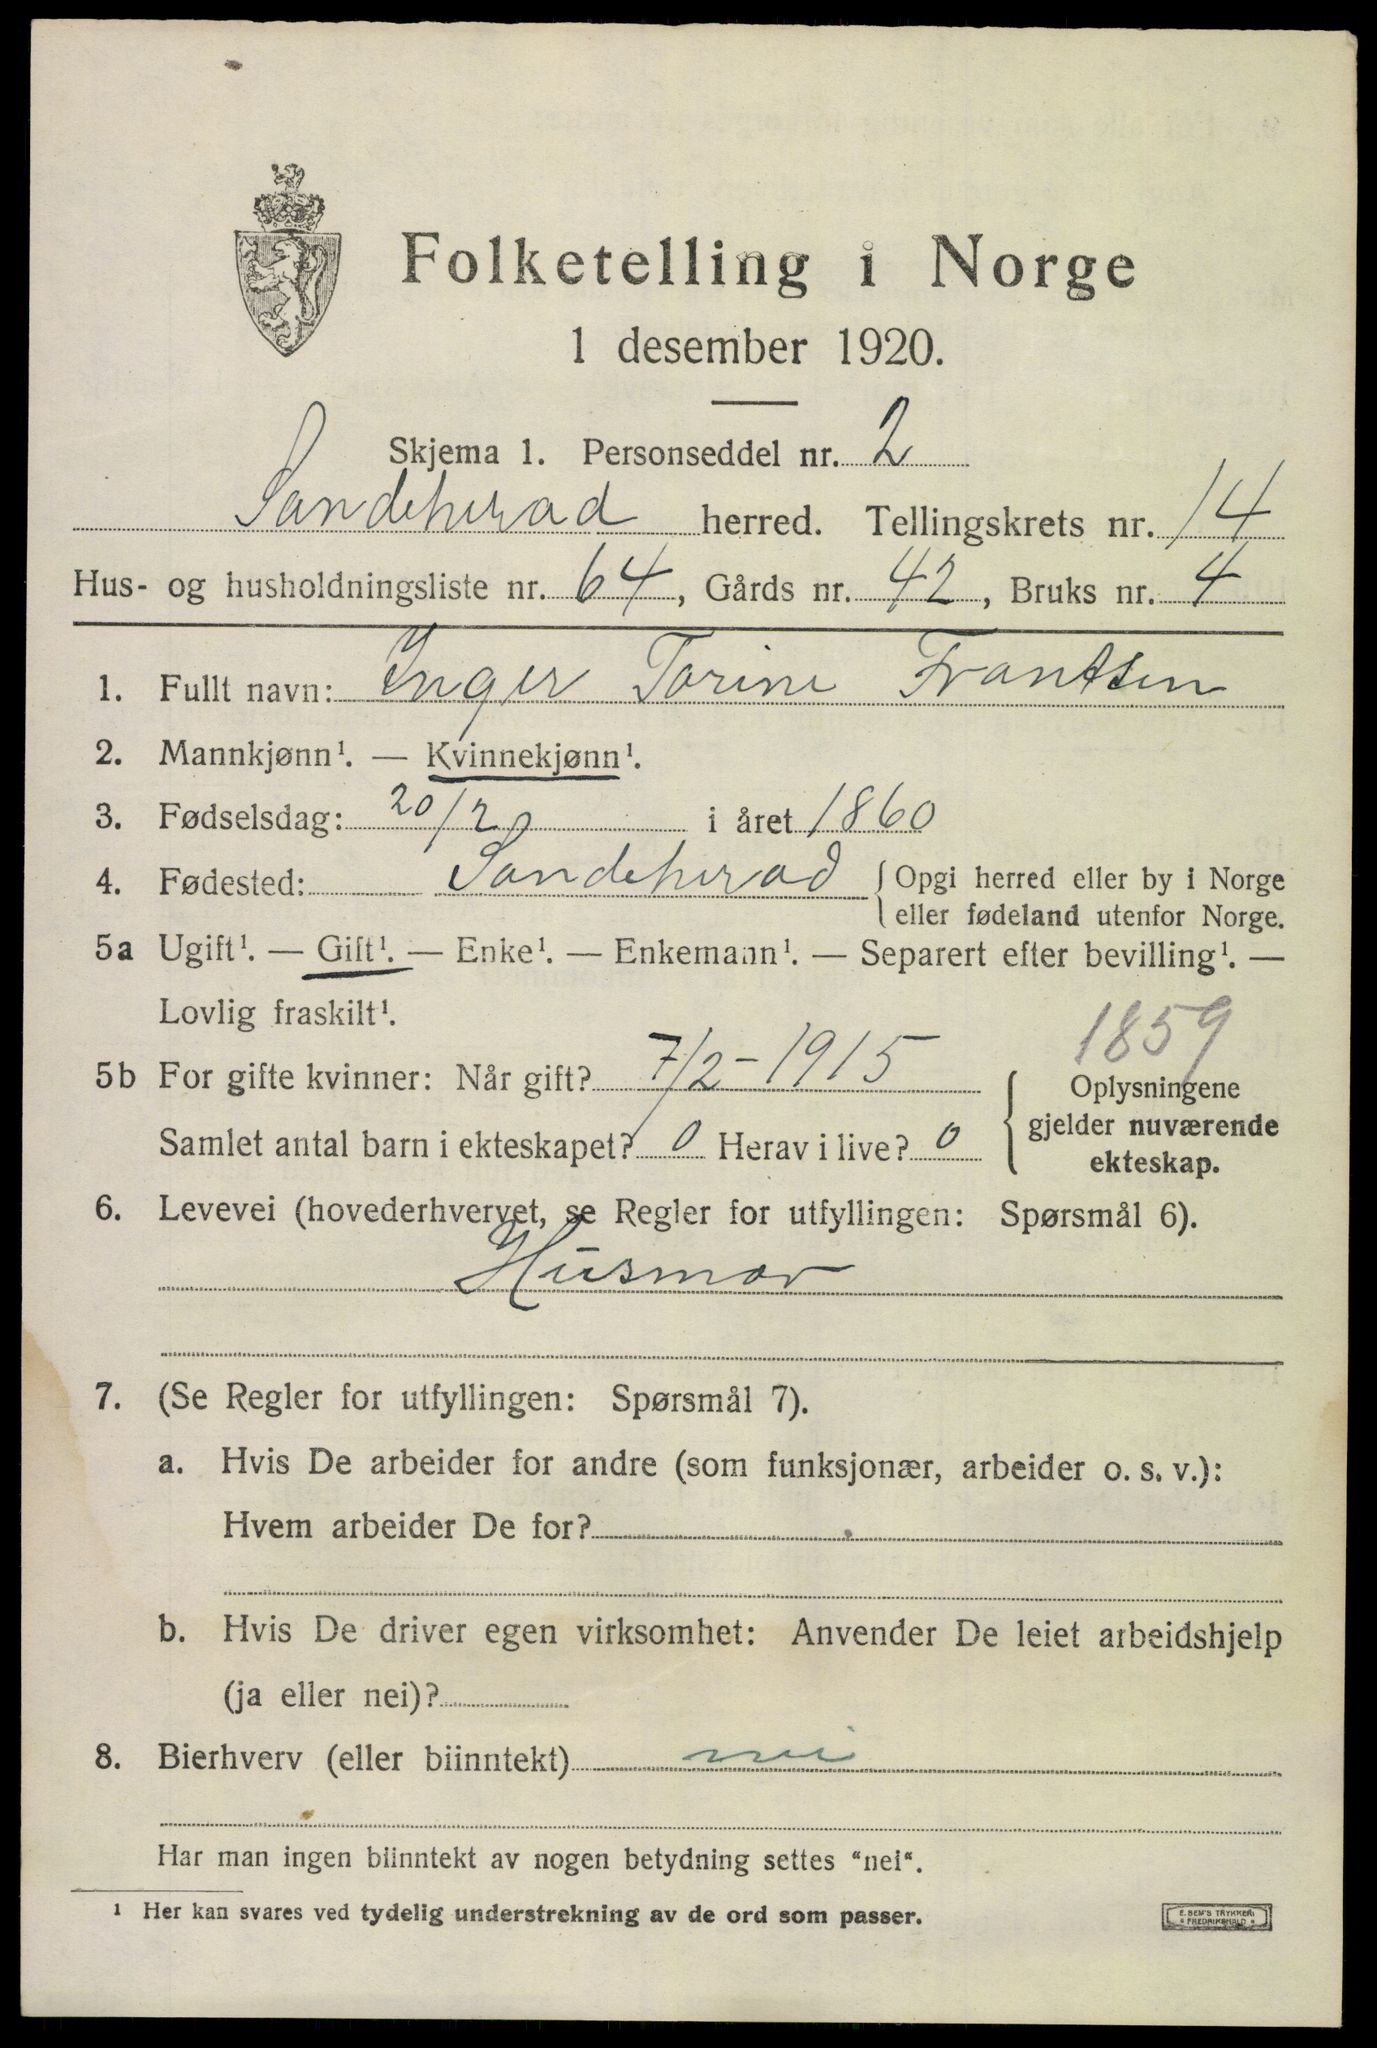 Folketelling i Norge
1 desember 1920.
Skjema 1. Personseddel nr. 2
Sandeherad herred. Tellingskrets nr. 14
Hus- og husholdningsliste nr. 64, Gårds nr. 42, Bruks nr. 4
1. Fullt navn: Inger Torine Frantsen
2. Mannkjønn¹. — Kvinnekjønn¹.
3. Fødselsdag: 20/2 i året 1860
4. Fødested: Sandeherad {Opgi herred eller by i Norge
eller fødeland utenfor Norge.
5a Ugift¹. — Gift¹. — Enke¹. — Enkemann¹. — Separert efter bevilling¹. —
Lovlig fraskilt¹.
1859
5b For gifte kvinner: Når gift? 7/2-1915
Samlet antal barn i ekteskapet? 0 Herav i live? 0
{Oplysningene
gjelder nuværende
ekteskap.
6. Levevei (hovederhvervet, se Regler for utfyllingen: Spørsmål 6).
Husmor
7. (Se Regler for utfyllingen: Spørsmål 7).
a. Hvis De arbeider for andre (som funksjonær, arbeider o. s. v.):
Hvem arbeider De for?
b. Hvis De driver egen virksomhet: Anvender De leiet arbeidshjelp
(ja eller nei)?
8. Bierhverv (eller biinntekt) nei
Har man ingen biinntekt av nogen betydning settes "nei".
¹ Her kan svares ved tydelig understrekning av de ord som passer.
E. SEM'S TRYKKERI
FREDRIKSHALD